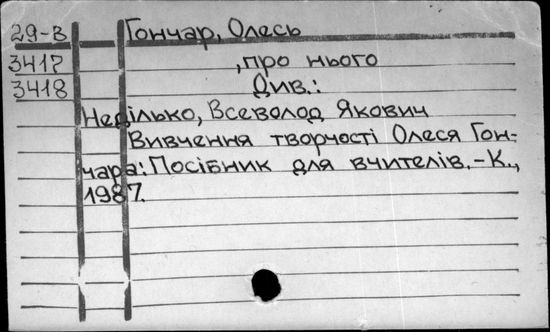 29-В Гончар, Олесь
3417 ,про нього
3418 Див.:
Неділько, Всеволод Якович
Вивчення творчості Олеся Гон-
чара: Посібник для вчителів.-К.,
1987.